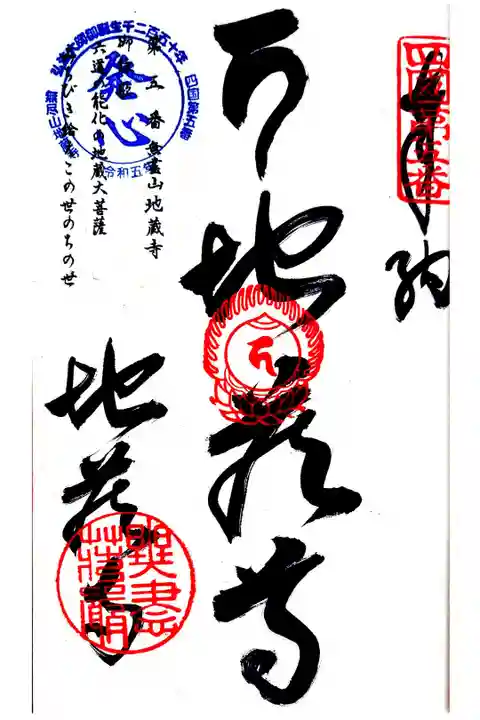 奉納
四国第五番
地蔵尊
弘法大師御誕生千二百五十年
四国第五番
発心
無尽山地蔵寺
令和五年
第五番無盡山地蔵寺
御詠歌
六道の能化の地蔵大菩薩
みちびき給へこの世のちの世
地蔵寺